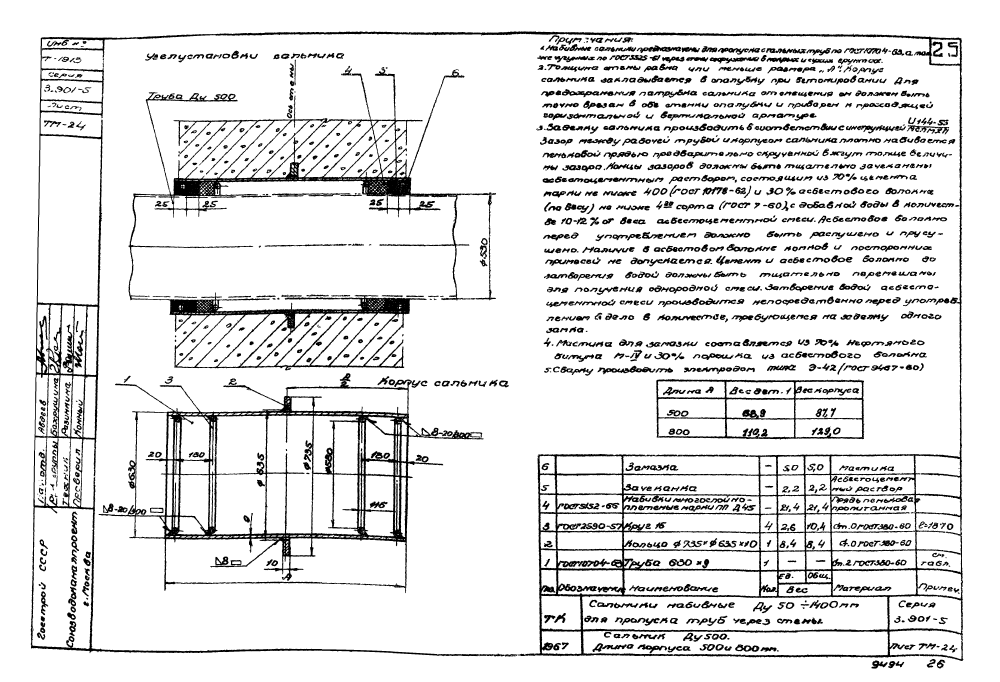 Инв №
Т-1915
серия
3.901-5
Лист
ТМ-24
Узел установки сальника
Ось стены
4
5
6
Труба Ду 500
25
25
25
25
ф530
Корпус сальника
1
3
2
20
180
ф630
ф635
ф735
180
20
10
А
Примечания:
25
1. Набивные сальники предназначены для пропуска стальных труб по ГОСТ 10704-63, а так
же чугунных по ГОСТ 5525-61 через стены сооружения в мокрых и сухих грунтах.
2. Толщина стены равна или меньше размера „А". Корпус
сальника закладывается в опалубку при бетонировании Для
предохранения патрубка сальника от смещения он должен быть
точно врезан в обе стенки опалубки и приварен к проходящей
горизонтальной и вертикальной арматуре
И 144-53
3. Заделку сальника производить в соответствии с инструкцией
Зазор между рабочей трубой и корпусом сальника плотно набивается
пеньковой прядью предварительно скрученной в жгут толще величи-
ны зазора. Концы зазоров должны быть тщательно зачеканены
асбестоцементным раствором, состоящим из 70% цемента
марки не ниже 400 (ГОСТ 10178-62) и 30% асбестового волокна
(по весу) не ниже 4го сорта (ГОСТ 7-60), с добавкой воды в количест-
ве 10-12% от веса асбестоцементной смеси. Асбестовое волокно
перед употреблением должно быть распушено и прусу-
шено. Наличие в асбестовом волокне комков и посторонних
примесей не допускается. Цемент и асбестовое волокно до
затворения водой должны быть тщательно перемешаны
для получения однородной смеси. Затворение водой асбесто-
цементной смеси производится непосредственно перед употреб-
лением в дело в количестве, требующемся на заделку одного
замка.
4. Мастика для замазки составляется из 70% нефтяного
битума М-IV и 30% порошка из асбестового волокна
5. Сварку производить электродом типа Э-42 (ГОСТ 9467-60)
Длина А Вес дет. 1 Вес корпуса
500 68,9 87,7
800 110,2 129,0
6 Замазка – 5,0 5,0 мастика
5 Зачеканка – 2,2 2,2 Асбестоцемент-
ный раствор
4 ГОСТ 5152-65 Набивки многослойно-
плетеные марки ПП Д45 – 21,4 21,4 Прядь пеньковая
пропитанная
3 ГОСТ 2590-57 Круг 16 4 2,6 10,4 Ст.0 ГОСТ 380-60 ℓ=1870
2 Кольцо ф735×ф635×10 1 8,4 8,4 Ст.0 ГОСТ 380-60
1 ГОСТ 10704-63 Труба 630×9 1 – – Ст.2 ГОСТ 380-60 см. табл.
Поз. Обозначение Наименование Кол. Ед. Общ. Вес Материал Примеч.
ТК
Сальники набивные Ду 50÷1400мм
для пропуска труб через стены.
Серия
3.901-5
1967
Сальник Ду500.
Длина корпуса 500 и 800 мм.
Лист ТМ-24
9494 26
Госстрой СССР
Союзводоканалпроект
г. Москва
Нач. отд.
Рук. группы
Техник
Проверил
Авдеев
Вахрушина
Конный